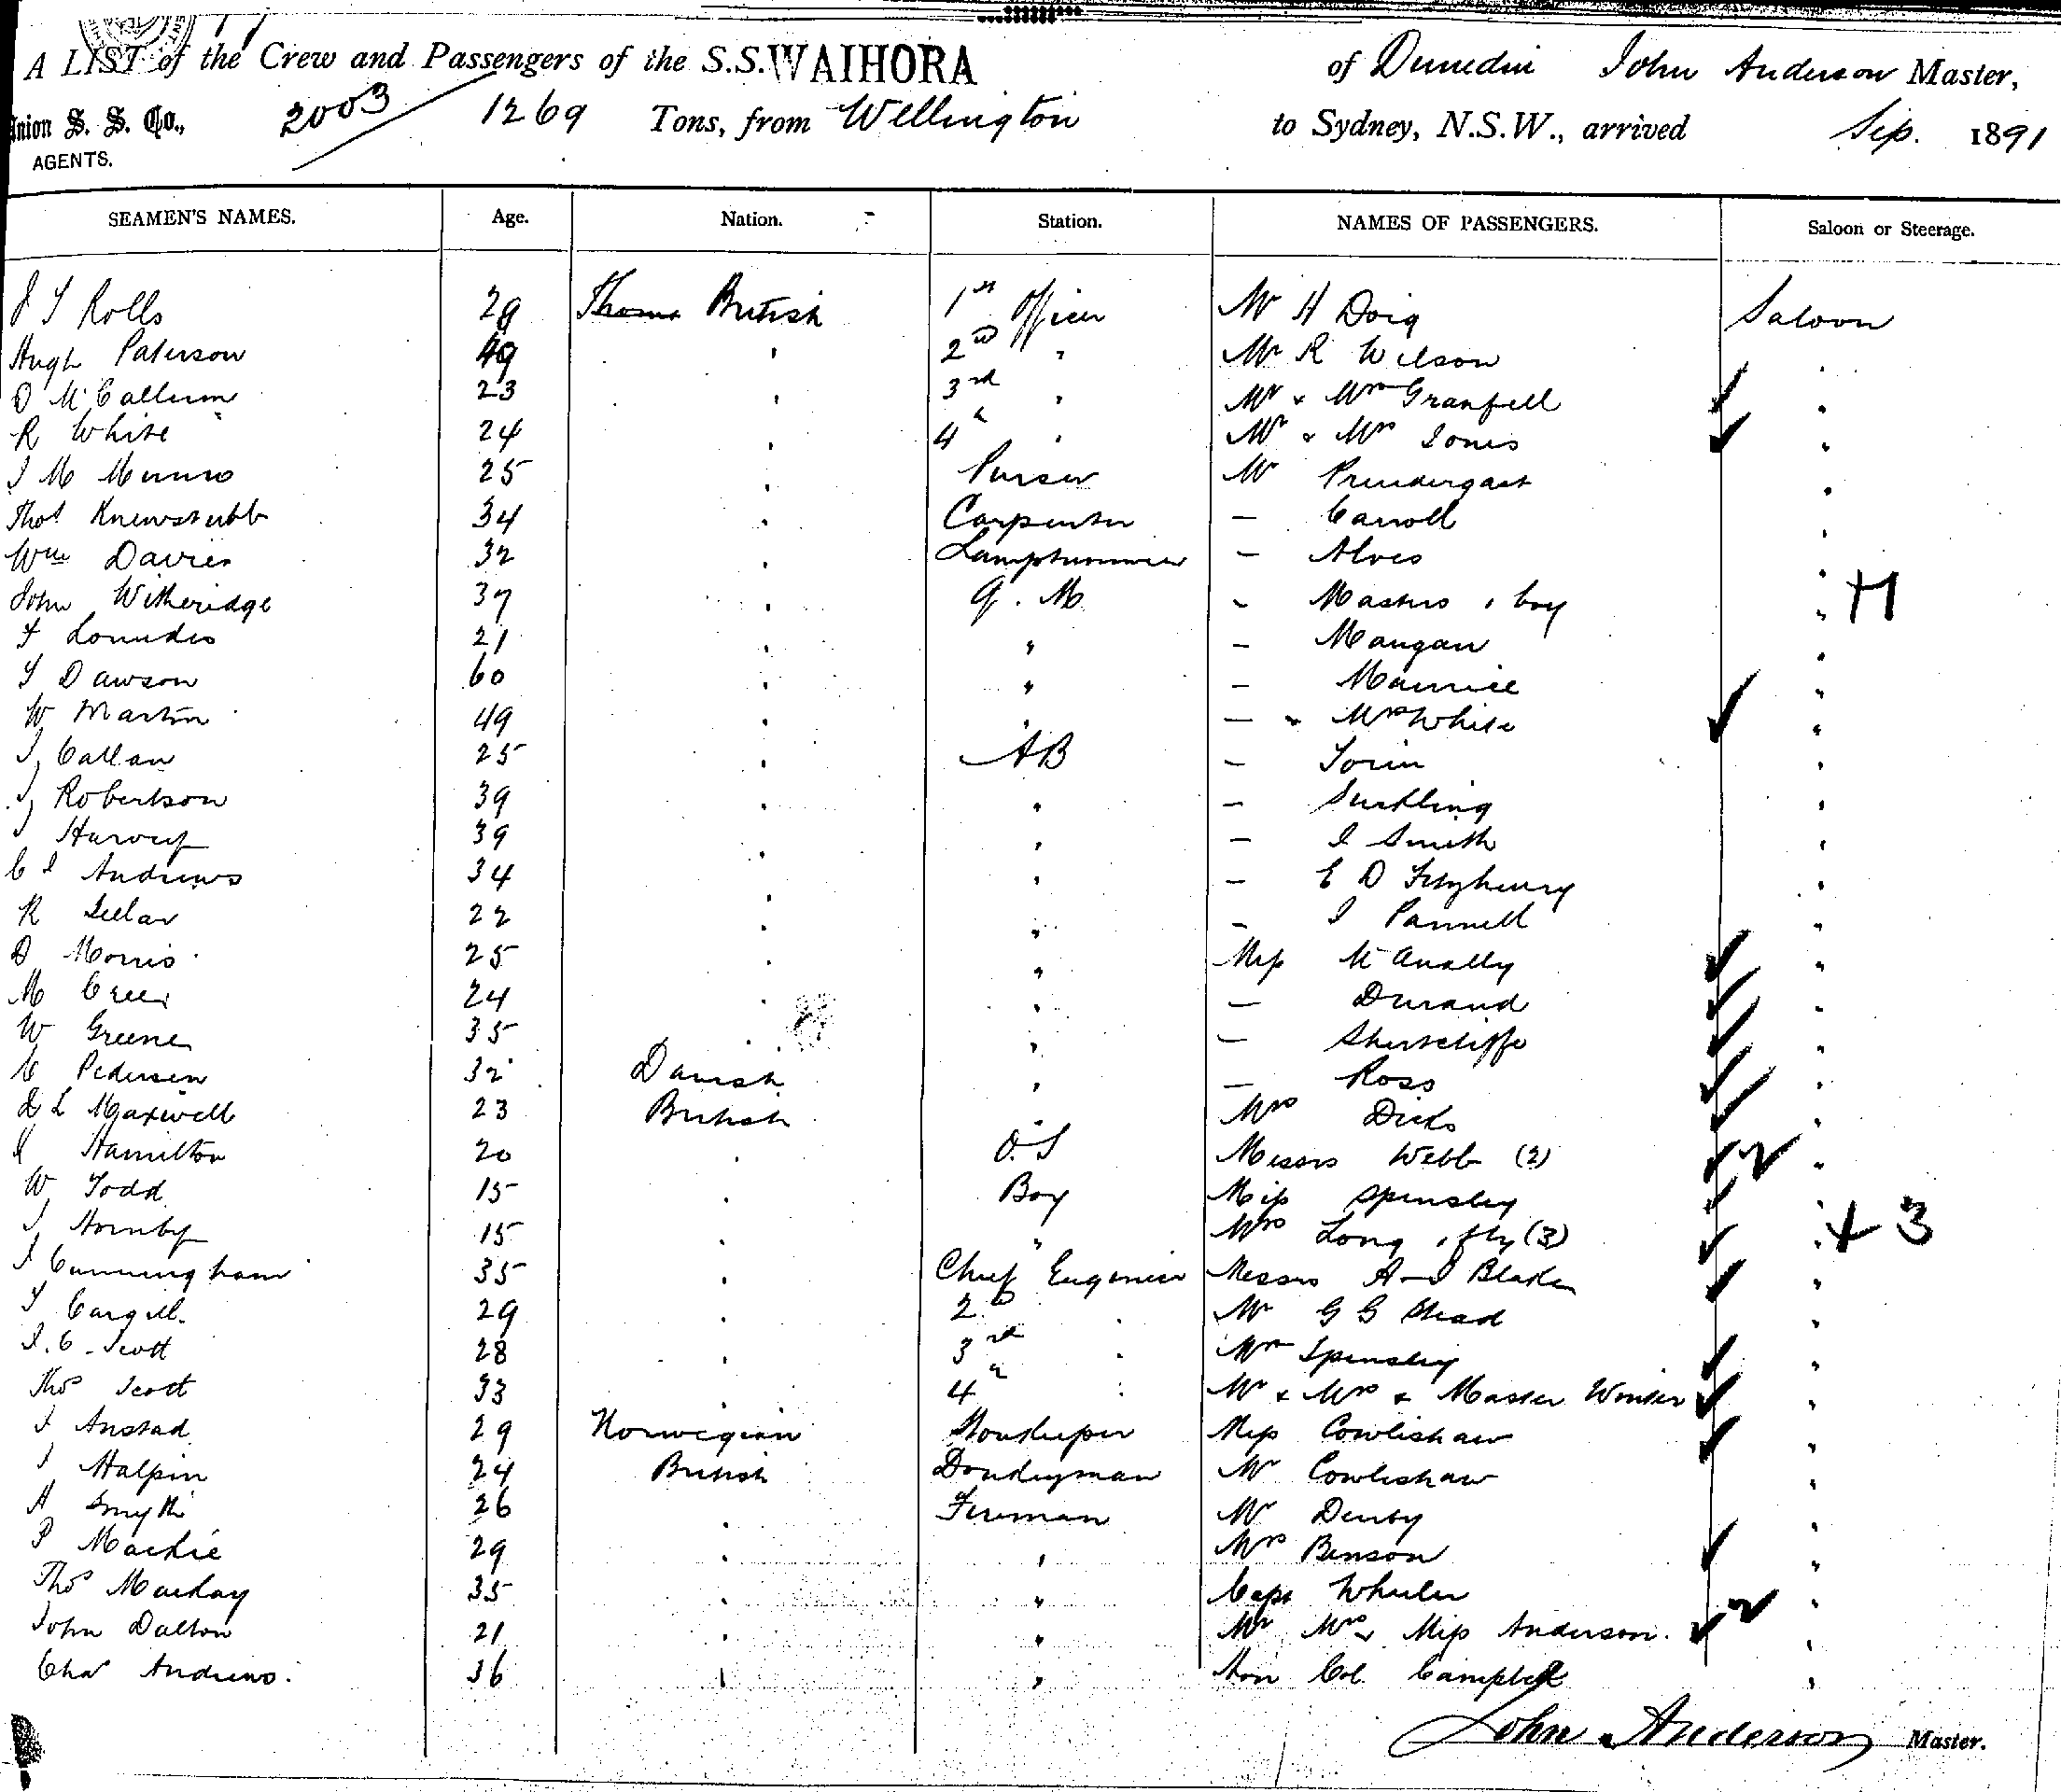 A LIST of the Crew and Passengers of the S.S. WAIHORA of Dunedin John Anderson Master,
Union S. S. Co., 2003 1269 Tons, from Wellington to Sydney, N.S.W., arrived Sep. 1891
AGENTS.
SEAMEN'S NAMES. Age. Nation. Station. NAMES OF PASSENGERS. Saloon or Steerage.
Rolls 29 British 1st Officer Mr H Doig Saloon
Hugh Paterson 49 " 2nd " Mr R Wilson "
D McCallum 23 " 3rd " Mr & Mrs Granfell "
R White 24 " 4th " Mr & Mrs Jones "
J M Munro 25 " Purser Mr Prendergast "
Thos Knewstubb 34 " Carpenter — Carroll "
Wm Davies 32 " Lamptrimmer — Alves "
John Witheridge 37 " Q. M. — Masters & boy " H
21 " " — Mangan "
T Dawson 60 " " — Maurice "
W Martin 49 " " — " Mrs White "
J Callan 25 " AB — "
J Robertson 39 " " — Suckling "
J Harvey 39 " " — J Smith "
C J Andrews 34 " " — E D Fitzhenry "
R 22 " " — J Pannell "
D Morris 25 " " Miss McAnally "
M Green 24 " " — Durand "
W Greene 35 " " — Shertcliffe "
C Pedersen 32 Danish " — Ross "
L Maxwell 23 British " Mrs Dicks "
J Hamilton 20 " O.S Messrs Webb (2) 2 "
W Todd 15 " Boy Miss Spensley "
J Hornby 15 " " Mrs Long & fly (3) " + 3
J Cunningham 35 " Chief Engineer Messrs A & J Blake "
T Cargill 29 " 2nd " Mr G G Stead "
J. C. Scott 28 " 3rd " Mrs Spensley "
Thos Scott 33 " 4th " Mr & Mrs & Master Winter "
J Anstad 29 Norwegian Storekeeper Miss Cowlishaw "
J Halpin 24 British Donkeyman Mr Cowlishaw "
A Smyth 26 " Fireman Mr Denby "
P Mackie 29 " " Mrs Benson "
Thos Mackay 35 " " Capt Wheeler "
John Dalton 21 " " Mr Mrs & Miss Anderson. 2 "
Chas Andrews. 36 " " Hon Col Campbell "
John Anderson Master.